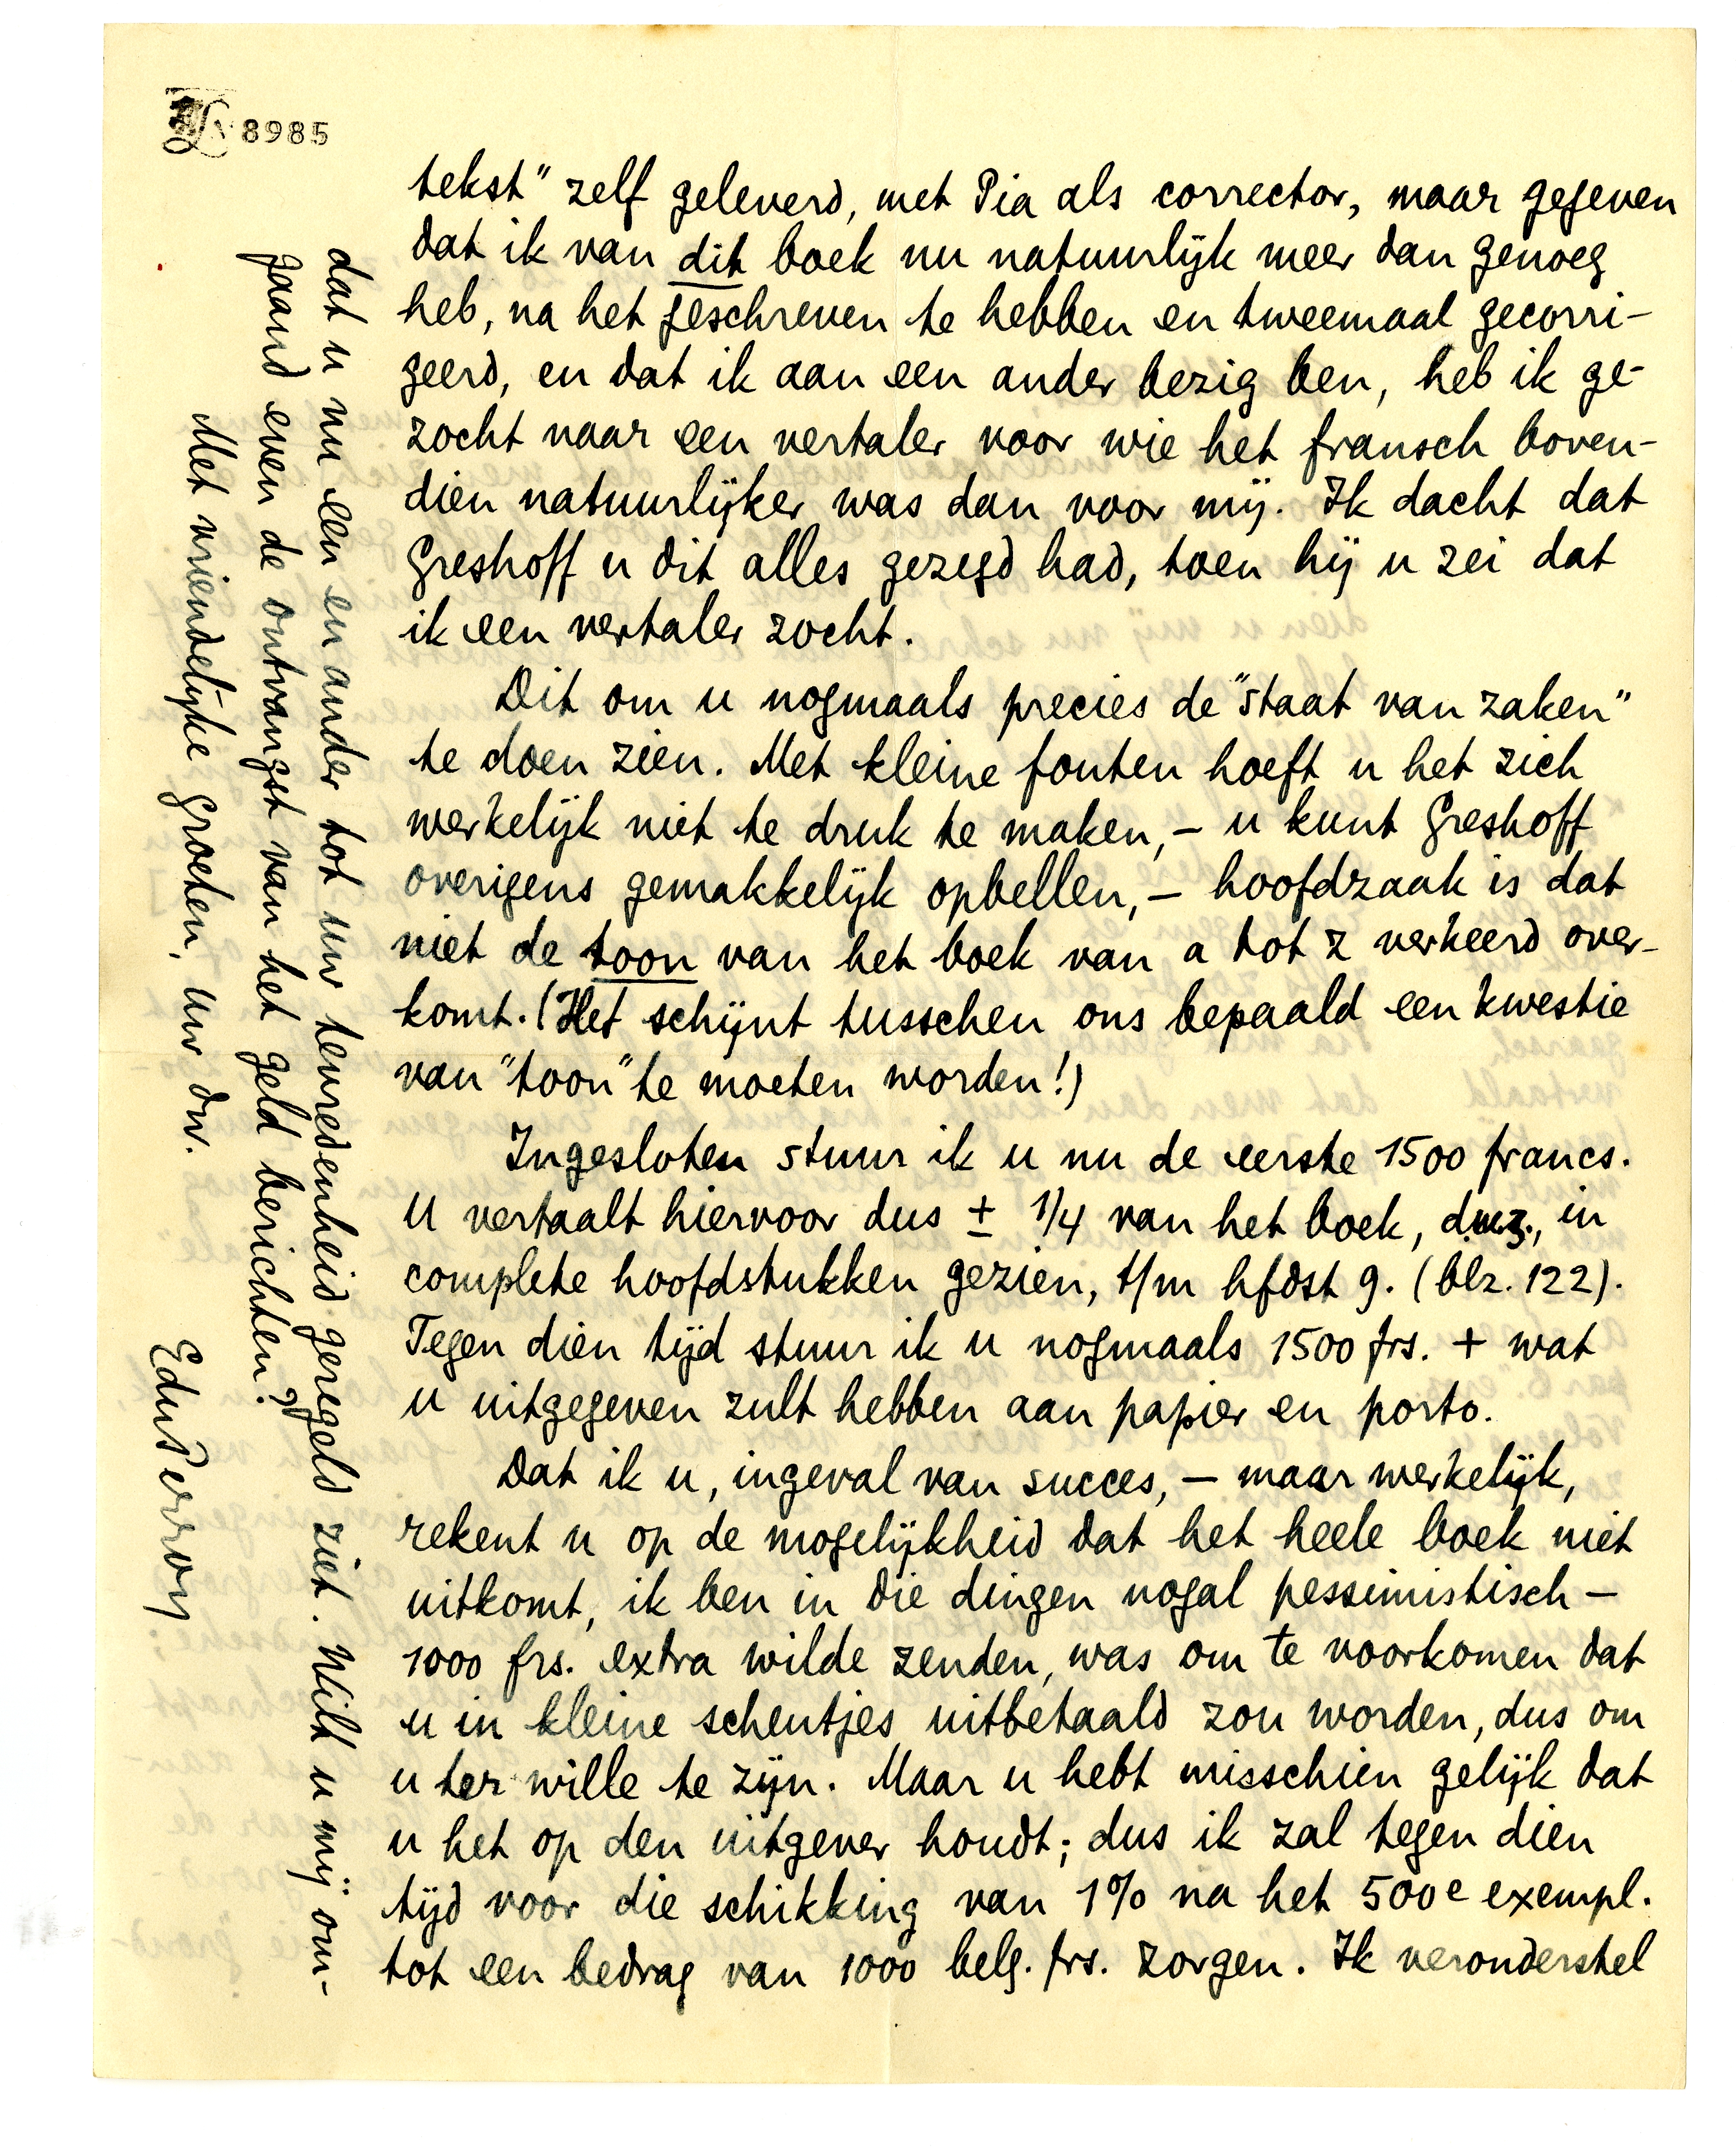 8985
tekst" zelf geleverd, met Pia als corrector, maar gegeven
dat ik van dit boek nu natuurlijk meer dan genoeg
heb, na het geschreven te hebben en tweemaal gecorri-
geerd, en dat ik aan een ander bezig ben, heb ik ge-
zocht naar een vertaler voor wie het fransch boven-
dien natuurlijker was dan voor mij. Ik dacht dat
Greshoff u dit alles gezegd had, toen hij u zei dat
ik een vertaler zocht.
Dit om u nogmaals precies de "staat van zaken"
te doen zien. Met kleine fouten hoeft u het zich
werkelijk niet te druk te maken, – u kunt Greshoff
overigens gemakkelijk opbellen, – hoofdzaak is dat
niet de toon van het boek van a tot z verkeerd over-
komt. (Het schijnt tusschen ons bepaald een kwestie
van "toon" te moeten worden!)
Ingesloten stuur ik u nu de eerste 1500 francs.
U vertaalt hiervoor dus ± 1/4 van het boek, d.w.z., in
complete hoofdstukken gezien, t/m hfdst 9. (blz. 122).
Tegen dien tijd stuur ik u nogmaals 1500 frs. + wat
u uitgegeven zult hebben aan papier en porto.
Dat ik u, ingeval van succes, – maar werkelijk,
rekent u op de mogelijkheid dat het heele boek niet
uitkomt, ik ben in die dingen nogal pessimistisch –
1000 frs. extra wilde zenden, was om te voorkomen dat
u in kleine scheutjes uitbetaald zou worden, dus om
u ter wille te zijn. Maar u hebt misschien gelijk dat
u het op den uitgever houdt; dus ik zal tegen dien
tijd voor die schikking van 1% na het 500e exempl.
tot een bedrag van 1000 belg. frs. zorgen. Ik veronderstel
dat u nu een en ander tot uw tevredenheid geregeld ziet. Wilt u mij om-
gaand even de ontvangst van het geld berichten?
Met vriendelijke groeten, uw dw.
EduPerron